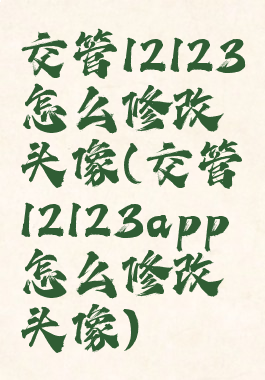 交管12123
怎么修改
头像(交管
12123app
怎么修改
头像)